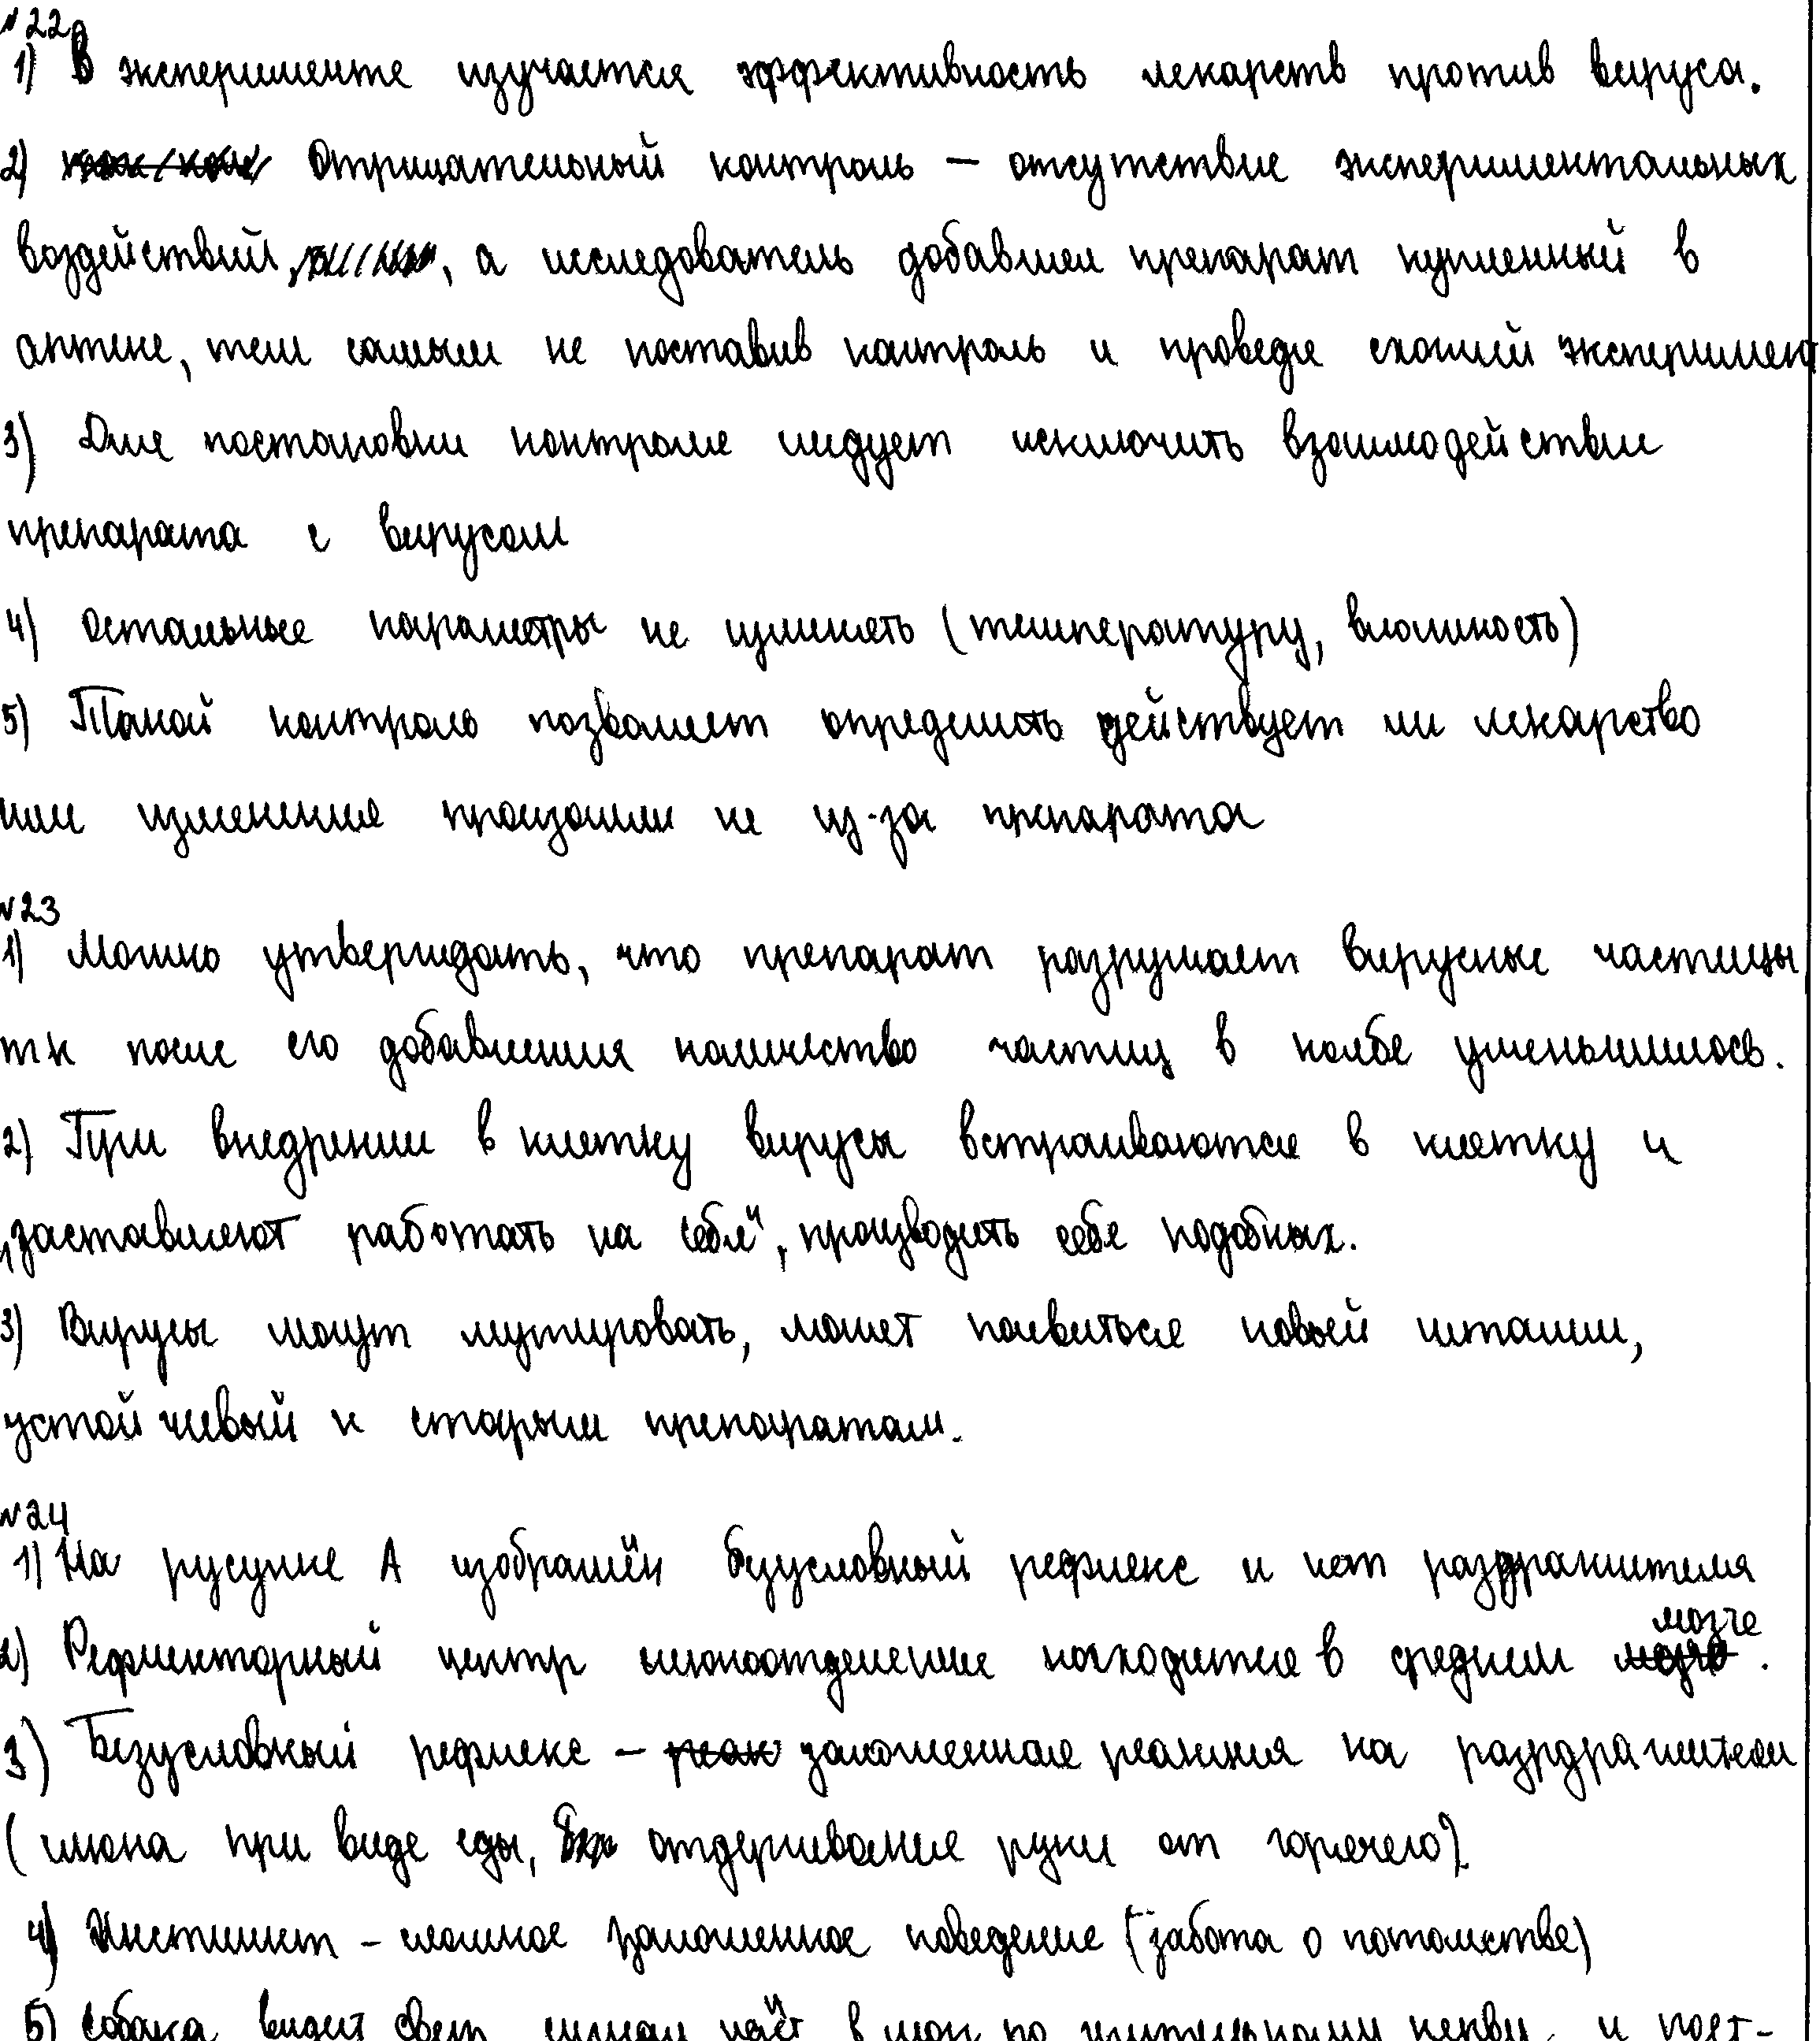 №22
1) В эксперименте изучается эффективность лекарств против вируса.
2) Отрицательный контроль – отсутствие экспериментальных
воздействий, а исследователь добавил препарат купленный в
аптеке, тем самым не поставив контроль и проведя схожий эксперимент
3) Для постановки контроля следует исключить взаимодействие
препарата с вирусом
4) Остальные параметры не изменять (температуру, влажность)
5) Такой контроль позволяет определить действует ли лекарство
или изменения произошли не из-за препарата
№23
1) Можно утверждать, что препарат разрушает вирусные частицы
тк после его добавления количество частиц в колбе уменьшилось.
2) При внедрении в клетку вирусы встраиваются в клетку и
„заставляют работать на себя", производить себе подобных.
3) Вирусы могут мутировать, может появиться новый штамм,
устойчивый к старым препаратам.
№24
1) На русунке А изображён безусловный рефлекс и нет раздражителя
2) Рефлекторный центр слюноотделения находится в среднем мозге.
3) Безусловный рефлекс – заложенная реакция на раздражители
(слюна при виде еды, отдергивание руки от горячего)
4) Инстинкт – сложное заложенное поведение (забота о потомстве)
5) Собака видит свет, сигнал идёт в по зрительному нерву, и